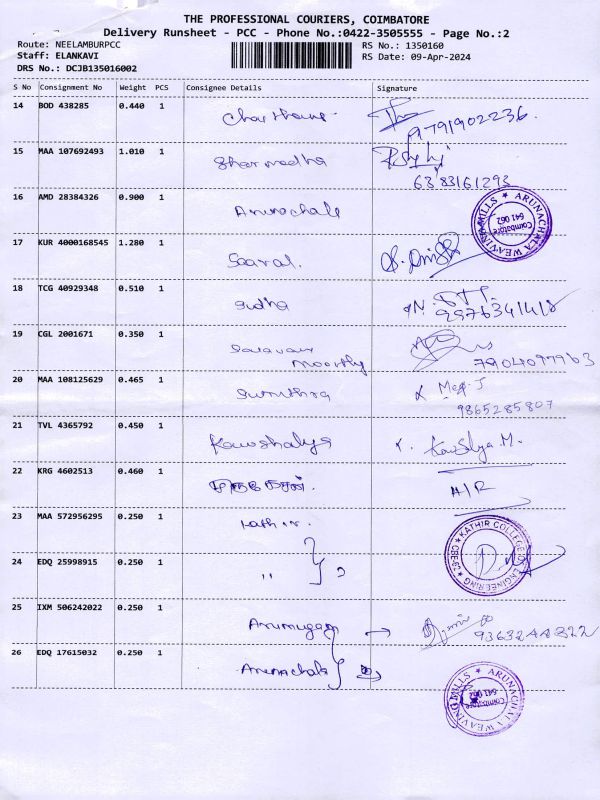 THE PROFESSIONAL COURIERS, COIMBATORE
Delivery Runsheet - PCC - Phone No.:0422-3505555 - Page No.:2
Route: NEELAMBURPCC
RS No.: 1350160
Staff: ELANKAVI
RS Date: 09-Apr-2024
DRS No.: DCJB135016002
S No Consignment No Weight PCS Consignee Details Signature
14 BOD 438285 0.440 1
9791902236.
15 MAA 107692493 1.010 1 Sharmadha
6383161293
16 AMD 28384326 0.900 1 Arunachala
ARUNACHALA WEAVING MILLS ★ Coimbatore 641 062
17 KUR 4000168545 1.280 1 Saaral.
18 TCG 40929348 0.510 1 Sudha
9976341418
19 CGL 2001671 0.350 1 Saravana
Moorthy 7904097963
20 MAA 108125629 0.465 1 Sumithra
9865285807
21 TVL 4365792 0.450 1 Kowshalya Kausalya M.
22 KRG 4602513 0.460 1 AIR
23 MAA 572956295 0.250 1 Kathir.
★ KATHIR COLLEGE OF ENGINEERING ★ CBE-62
24 EDQ 25998915 0.250 1 " 2
25 IXM 506242022 0.250 1 Arumugam
9363244822
26 EDQ 17615032 0.250 1 Arunachala
ARUNACHALA WEAVING MILLS ★ Coimbatore 641 062